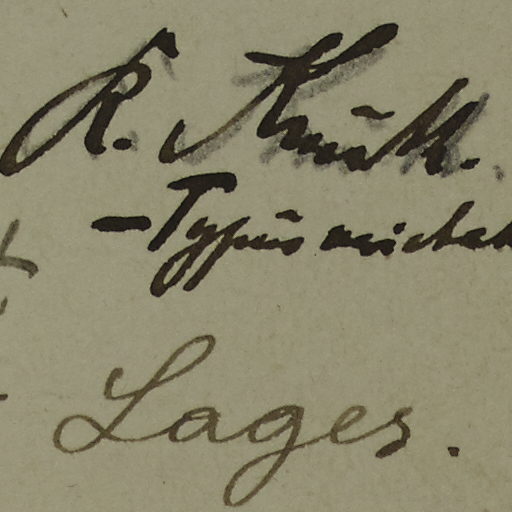 R. Knuth.
– Typus
Lages.